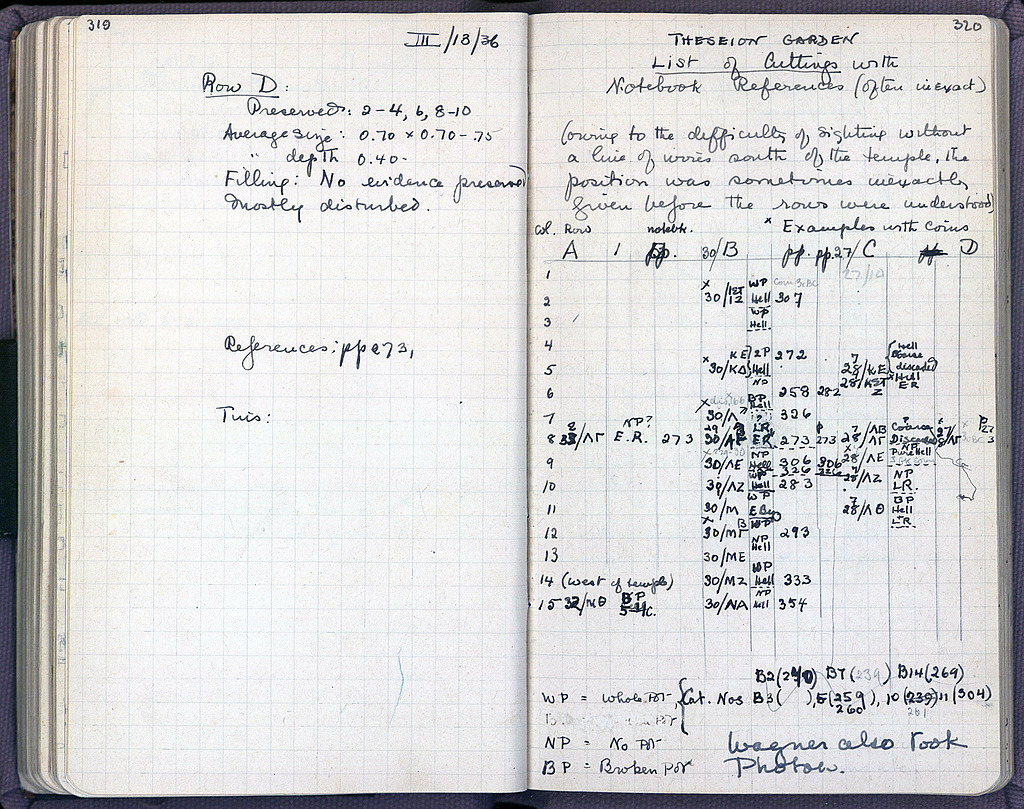 319
III/13/36
Row D:
Preserved: 2-4, 6, 8-10
Average size: 0.70 × 0.70-.75
" depth 0.40-
Filling: No evidence preserved
Mostly disturbed.
References: pp 273,
This:
320
THESEION GARDEN
List of Cuttings with
Notebook References (often inexact)
(owing to the difficulty of sighting without
a line of wires south of the temple, the
position was sometimes inexactly
given before the rows were understood)
× Examples with coins
Col. Row notebk.
A 1 pp. 30/B pp. pp. 27/C pp D
1
2 30/ WP Hell 307
3 WP Hell.
4 KE 2P 272
5 30/KΔ Hell 28/KE Hell Coarse discarded
6 NP 258 282 28/KΣT Z Hell ER
7 30/Λ BP Hell 326
8 /ΛΓ NP? E.R. 273 30/ΛΓ LR ER 273 273 28/ΛB 28/ΛΓ Coarse Discarded
9 30/ΛE NP Hell 306 306 28/ΛE NP Pure Hell
326 326
10 30/ΛZ WP Hell 283 28/ΛZ NP LR.
11 30/M WP 28/ΛΘ BP Hell L+R
12 30/MΓ WP NP 293
13 30/ME Hell
14 (west of temple) 30/MZ WP Hell 333
15 32/MΘ BP 30/NA NP Hell 354
B2(240) B7(239) B14(269)
WP = Whole Pot, Cat. Nos B3( ), 5(259), 10(239) 11(304)
260 261
NP = No Pot
BP = Broken Pot
Wagner also took
Photos.